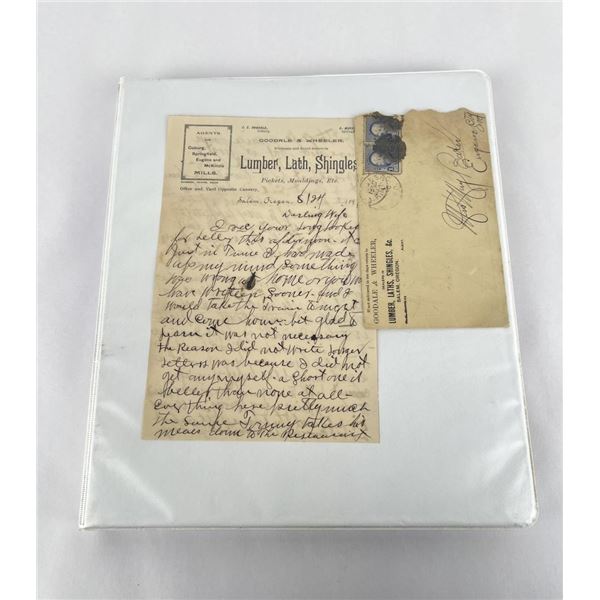 AGENTS
FOR
Coburg,
Springfield,
Eugene and
McKenzie
MILLS.
GOODALE & WHEELER,
Lumber, Lath, Shingles
Pickets, Mouldings, Etc.
Office and Yard Opposite Cannery,
Salem, Oregon, 8/24 189
Darling Wife
I rec your long looked
for letter this afternoon
Just in time I had made
up my mind something
was wrong at home or you
have written sooner and I
would take the train tonight
and come home but glad to
learn it was not necessary
the Reason I did not write longer
letters was because I did not
get any myself a short one is
better than none at all
Everything here pretty much
the same Tommy takes his
meals down to the Restaurant
Eugene City
GOODALE & WHEELER,
DEALERS IN
LUMBER, LATHS, SHINGLES, &c.
SALEM, OREGON.